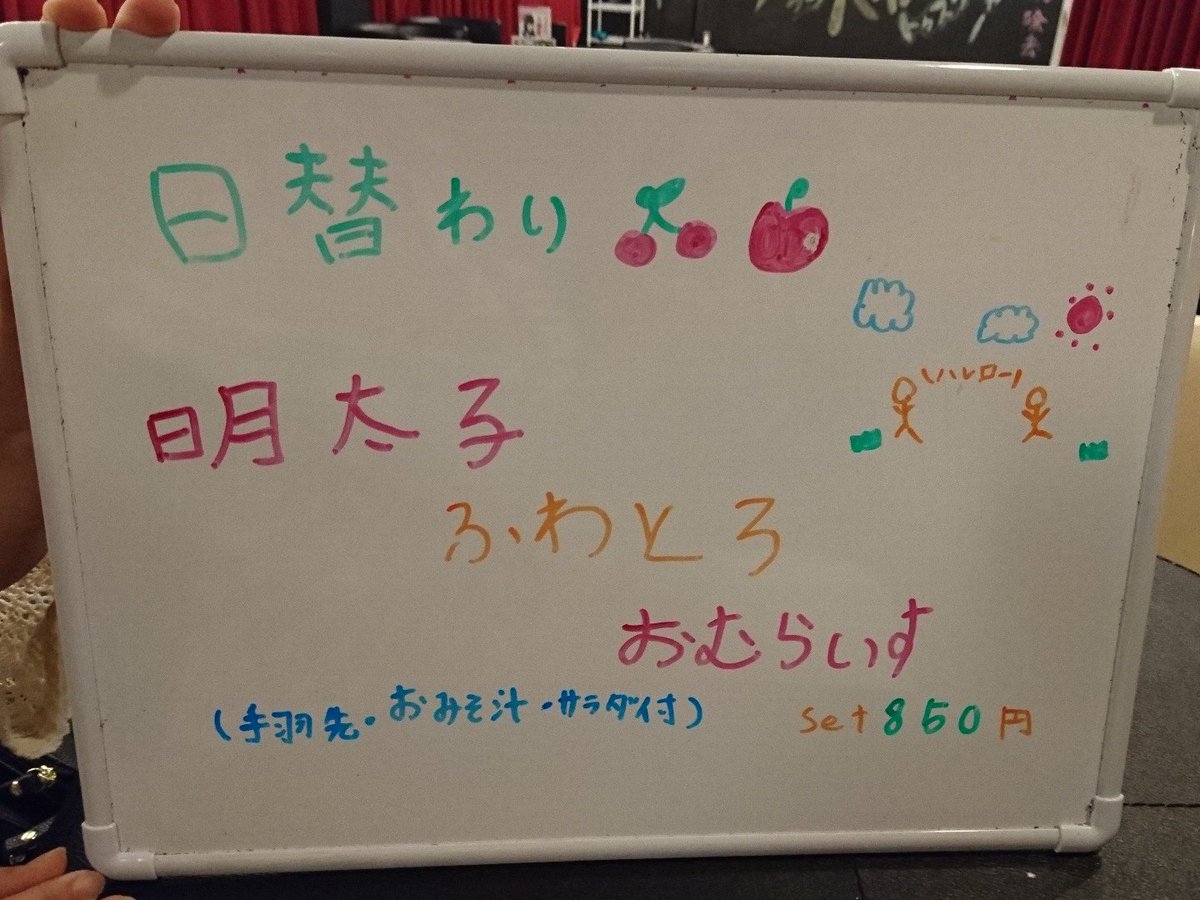 日替わり
\ハロー/
明太子
ふわとろ
おむらいす
(手羽先・おみそ汁・サラダ付) set 850円